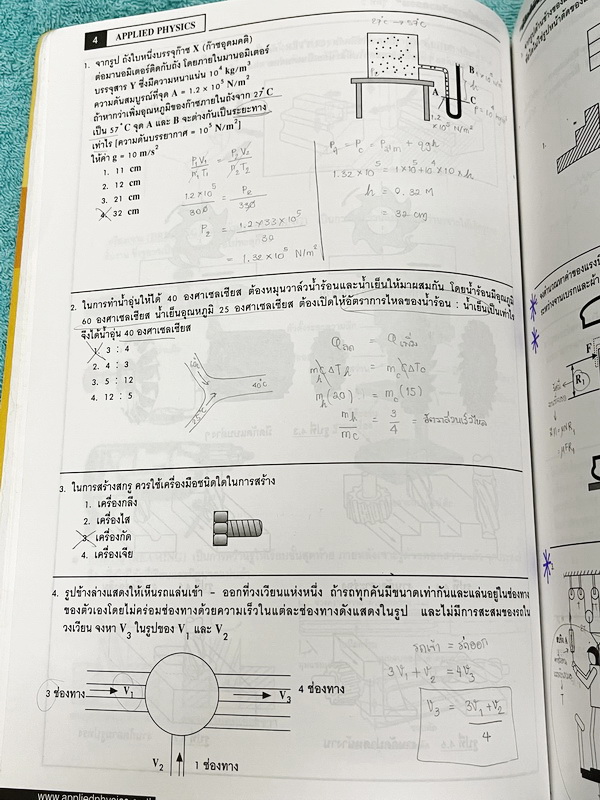 4 APPLIED PHYSICS
1. จากรูป ถังใบหนึ่งบรรจุก๊าซ X (ก๊าซอุดมคติ)
ต่อมานอมิเตอร์ติดกับถัง โดยภายในมานอมิเตอร์
บรรจุสาร Y ซึ่งมีความหนาแน่น 10⁴ kg/m³
ความดันสมบูรณ์ที่จุด A = 1.2 × 10⁵ N/m²
ถ้าหากว่าเพิ่มอุณหภูมิของก๊าซภายในถังจาก 27°C
เป็น 57°C จุด A และ B จะต่างกันเป็นระยะทาง
เท่าไร [ความดันบรรยากาศ = 10⁵ N/m²]
ให้ค่า g = 10 m/s²
1. 11 cm
2. 12 cm
3. 21 cm
4. 32 cm
27°C → 57°C
B
C
P₁V₁/n₁T₁ = P₂V₂/n₂T₂
1.2×10⁵/300 = P₂/330
P₂ = 1.2×33×10⁵/30
= 1.32×10⁵ N/m²
1.32×10⁵ = 1×10⁵+10⁴×10×h
h = 0.32 M
= 32 cm
2. ในการทำน้ำอุ่นให้ได้ 40 องศาเซลเซียส ต้องหมุนวาล์วน้ำร้อนและน้ำเย็นให้มาผสมกัน โดยน้ำร้อนมีอุณหภูมิ
60 องศาเซลเซียส น้ำเย็นอุณหภูมิ 25 องศาเซลเซียส ต้องเปิดให้อัตราการไหลของน้ำร้อน : น้ำเย็นเป็นเท่าใด
จึงได้น้ำอุ่น 40 องศาเซลเซียส
1. 3 : 4
2. 4 : 3
3. 5 : 12
4. 12 : 5
60°C
40°C
25°C
Qลด = Qเพิ่ม
m_h c ΔT_h = m_c c ΔT_c
m_h(20) = m_c(15)
m_h/m_c = 3/4 = อัตราส่วนเร็วไหล
3. ในการสร้างสกรู ควรใช้เครื่องมือชนิดใดในการสร้าง
1. เครื่องกลึง
2. เครื่องไส
3. เครื่องกัด
4. เครื่องเจีย
4. รูปข้างล่างแสดงให้เห็นรถแล่นเข้า - ออกที่วงเวียนแห่งหนึ่ง ถ้ารถทุกคันมีขนาดเท่ากันและแล่นอยู่ในช่องทาง
ของตัวเองโดยไม่คร่อมช่องทางด้วยความเร็วในแต่ละช่องทางดังแสดงในรูป และไม่มีการสะสมของรถใน
วงเวียน จงหา V₃ ในรูปของ V₁ และ V₂
3 ช่องทาง
V₁
V₃
4 ช่องทาง
V₂
1 ช่องทาง
รถเข้า = รถออก
3V₁ + V₂ = 4V₃
V₃ = 3V₁+V₂/4
F
R₁